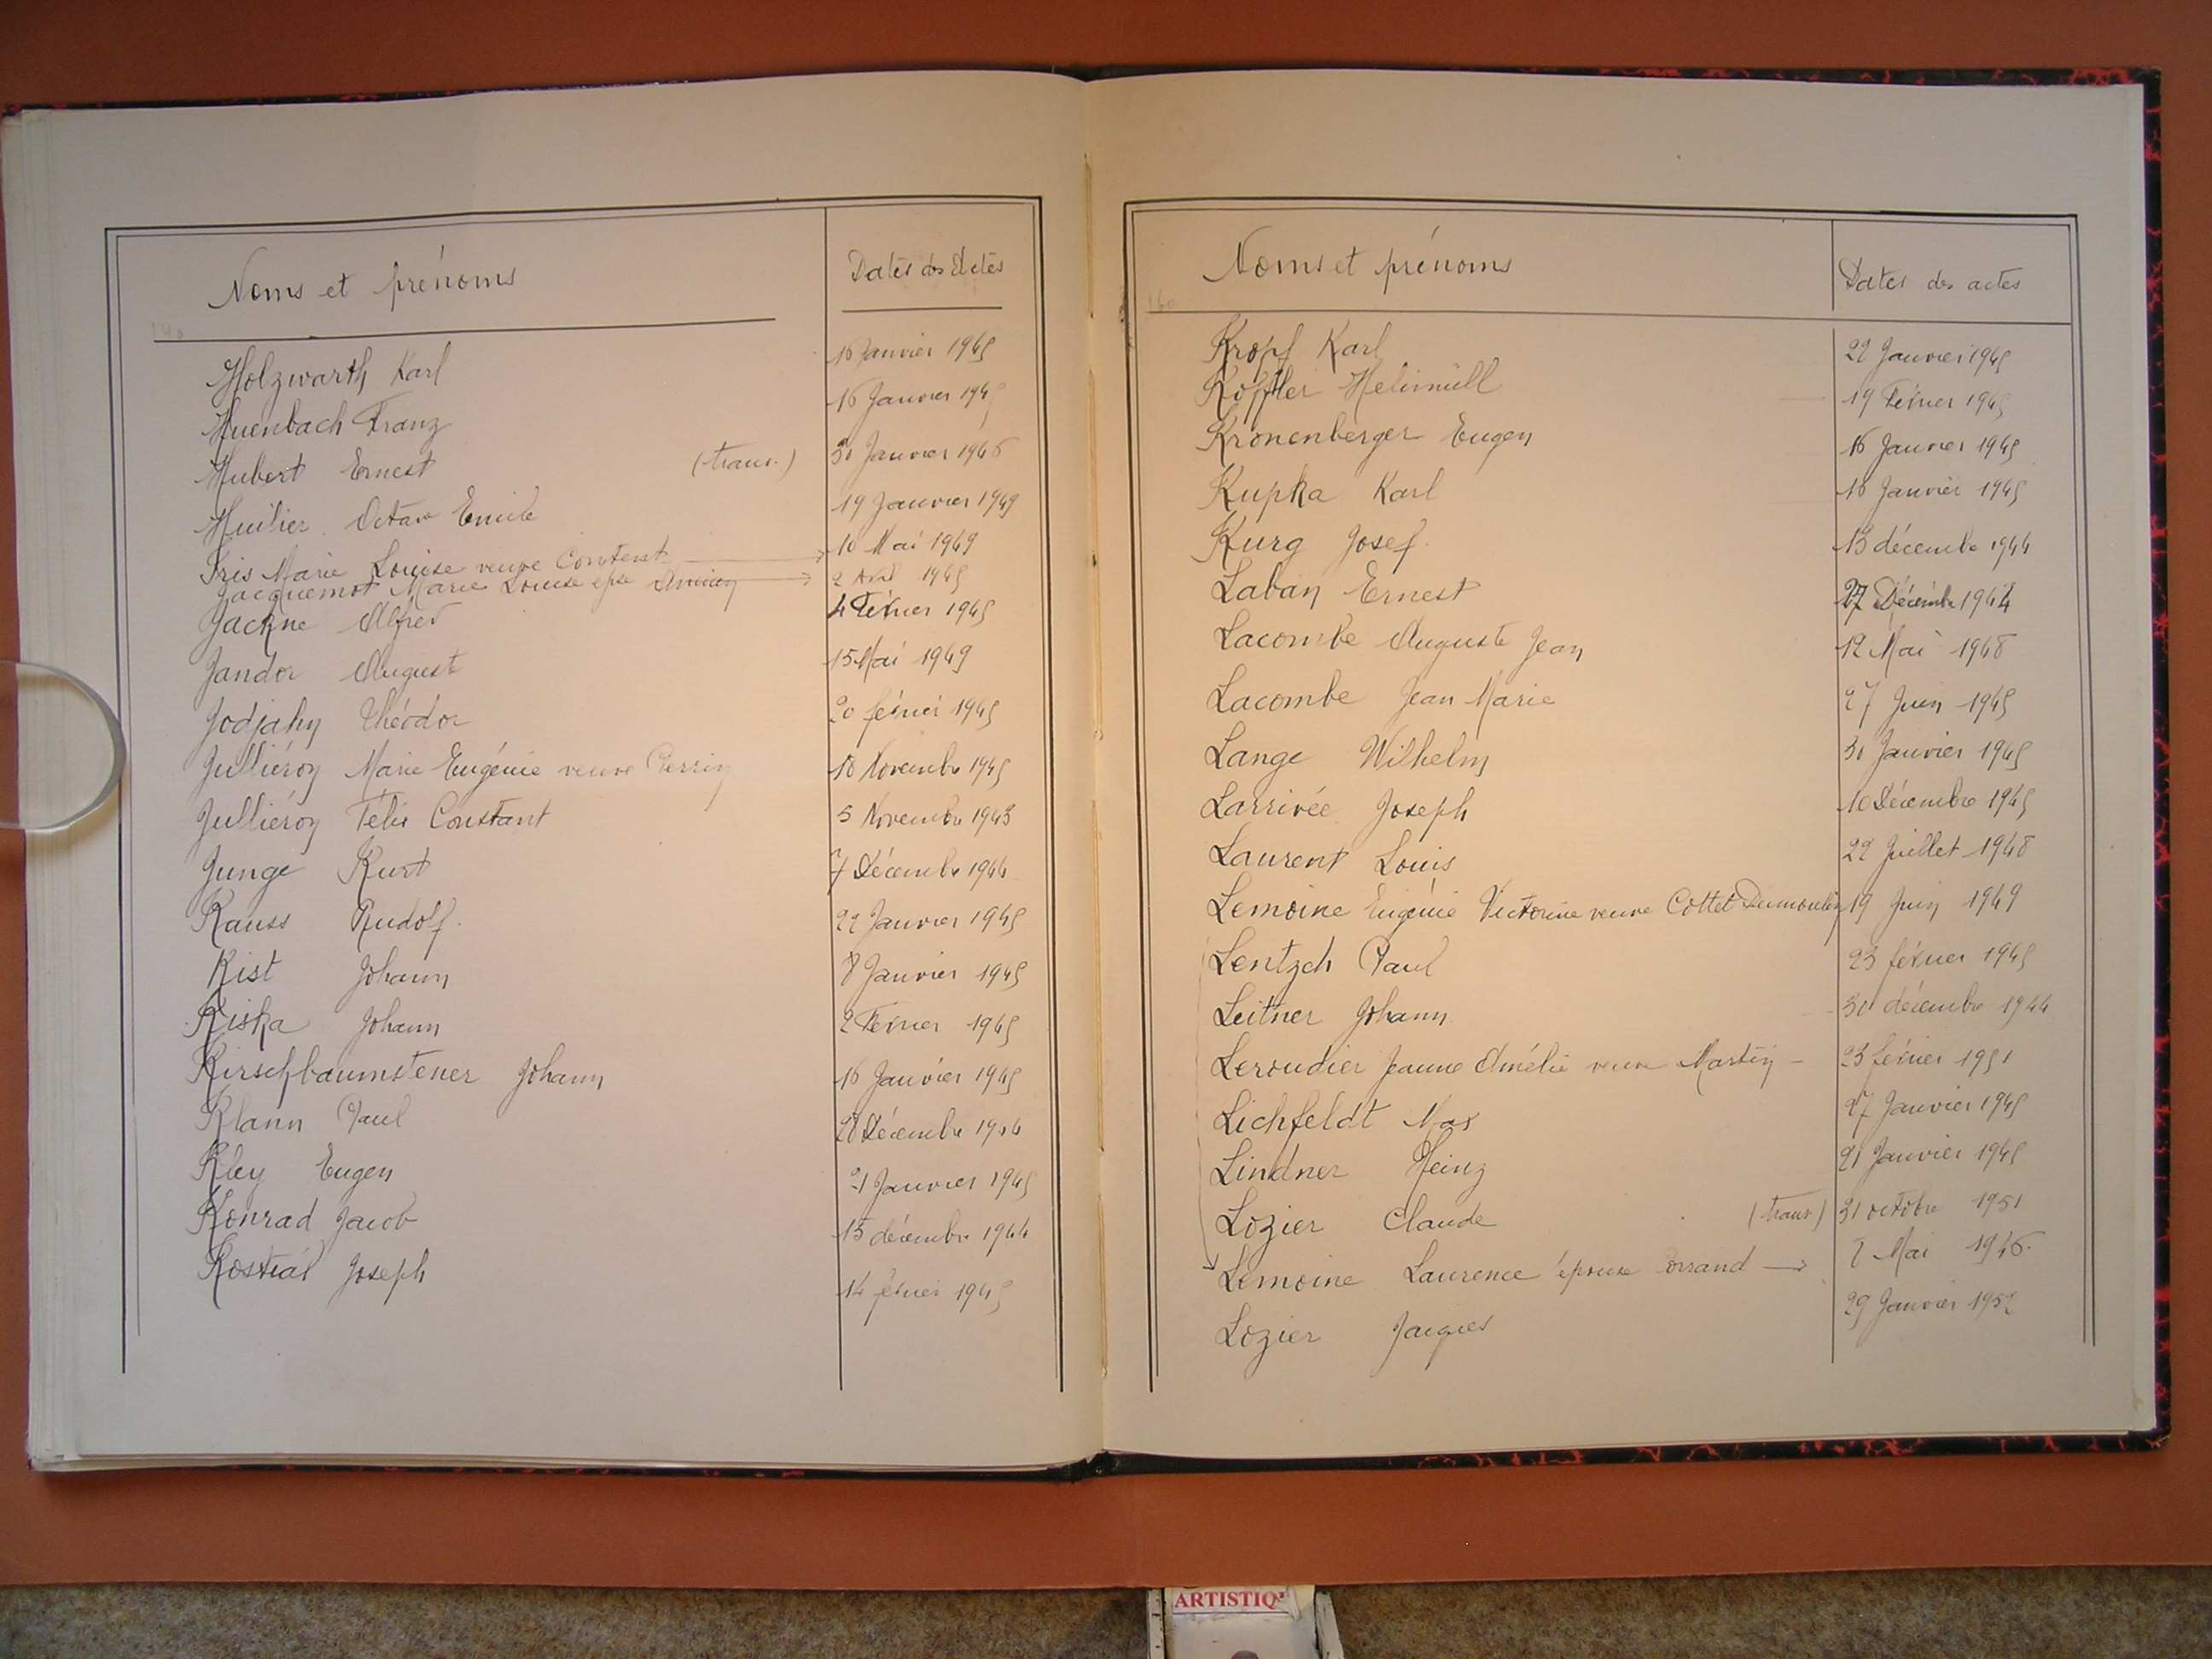 Noms et prénoms Dates des Actes
140
Holzwarth Karl 16 Janvier 1945
Huenbach Franz 16 Janvier 1945
Hubert Ernest (trans.) 30 Janvier 1946
Huilier Octave Emile 19 Janvier 1949
Iris Marie Louise veuve Content 10 Mai 1949
Jacquemot Marie Louise epse 2 Avril 1945
Jackne Alfred 4 Février 1945
Jandor August 15 Mai 1949
Jodjahn Théodor 20 février 1945
Julliéron Marie Eugénie veuve Perrin 18 Novembre 1945
Julliéron Félix Constant 5 Novembre 1943
Junge Kurt 7 Décembre 1944
Kauss Rudolf 22 Janvier 1945
Kist Johann 8 Janvier 1945
Kiska Johann 2 Février 1945
Kirschbaumstener Johann 16 Janvier 1945
Klann Paul 28 Décembre 1944
Kley Eugen 21 Janvier 1945
Konrad Jacob 15 décembre 1944
Kostial Joseph 14 février 1945
Noms et prénoms Dates des actes
160
Kropf Karl 22 Janvier 1945
Koffler 19 Février 1945
Kronenberger Eugen 16 Janvier 1945
Kupka Karl 16 Janvier 1945
Kurg Josef 13 décembre 1944
Laban Ernest 27 Décembre 1944
Lacombe Auguste Jean 12 Mai 1948
Lacombe Jean Marie 27 Juin 1945
Lange Wilhelm 30 Janvier 1945
Larrivée Joseph 10 Décembre 1945
Laurent Louis 22 Juillet 1948
Lemoine Eugénie Victorine veuve Cottet Dumoulin 19 Juin 1949
Lentzch Paul 23 février 1945
Leitner Johann 30 décembre 1944
Leroudier Jeanne Amélie veuve Martin 23 février 1951
Lichfeldt Max 27 Janvier 1945
Lindner Heinz 21 Janvier 1945
Lozier Claude (trans) 31 octobre 1951
Lemoine Laurence épouse Mai 1946
Lozier Jacques 29 Janvier 1952
ARTISTIQ